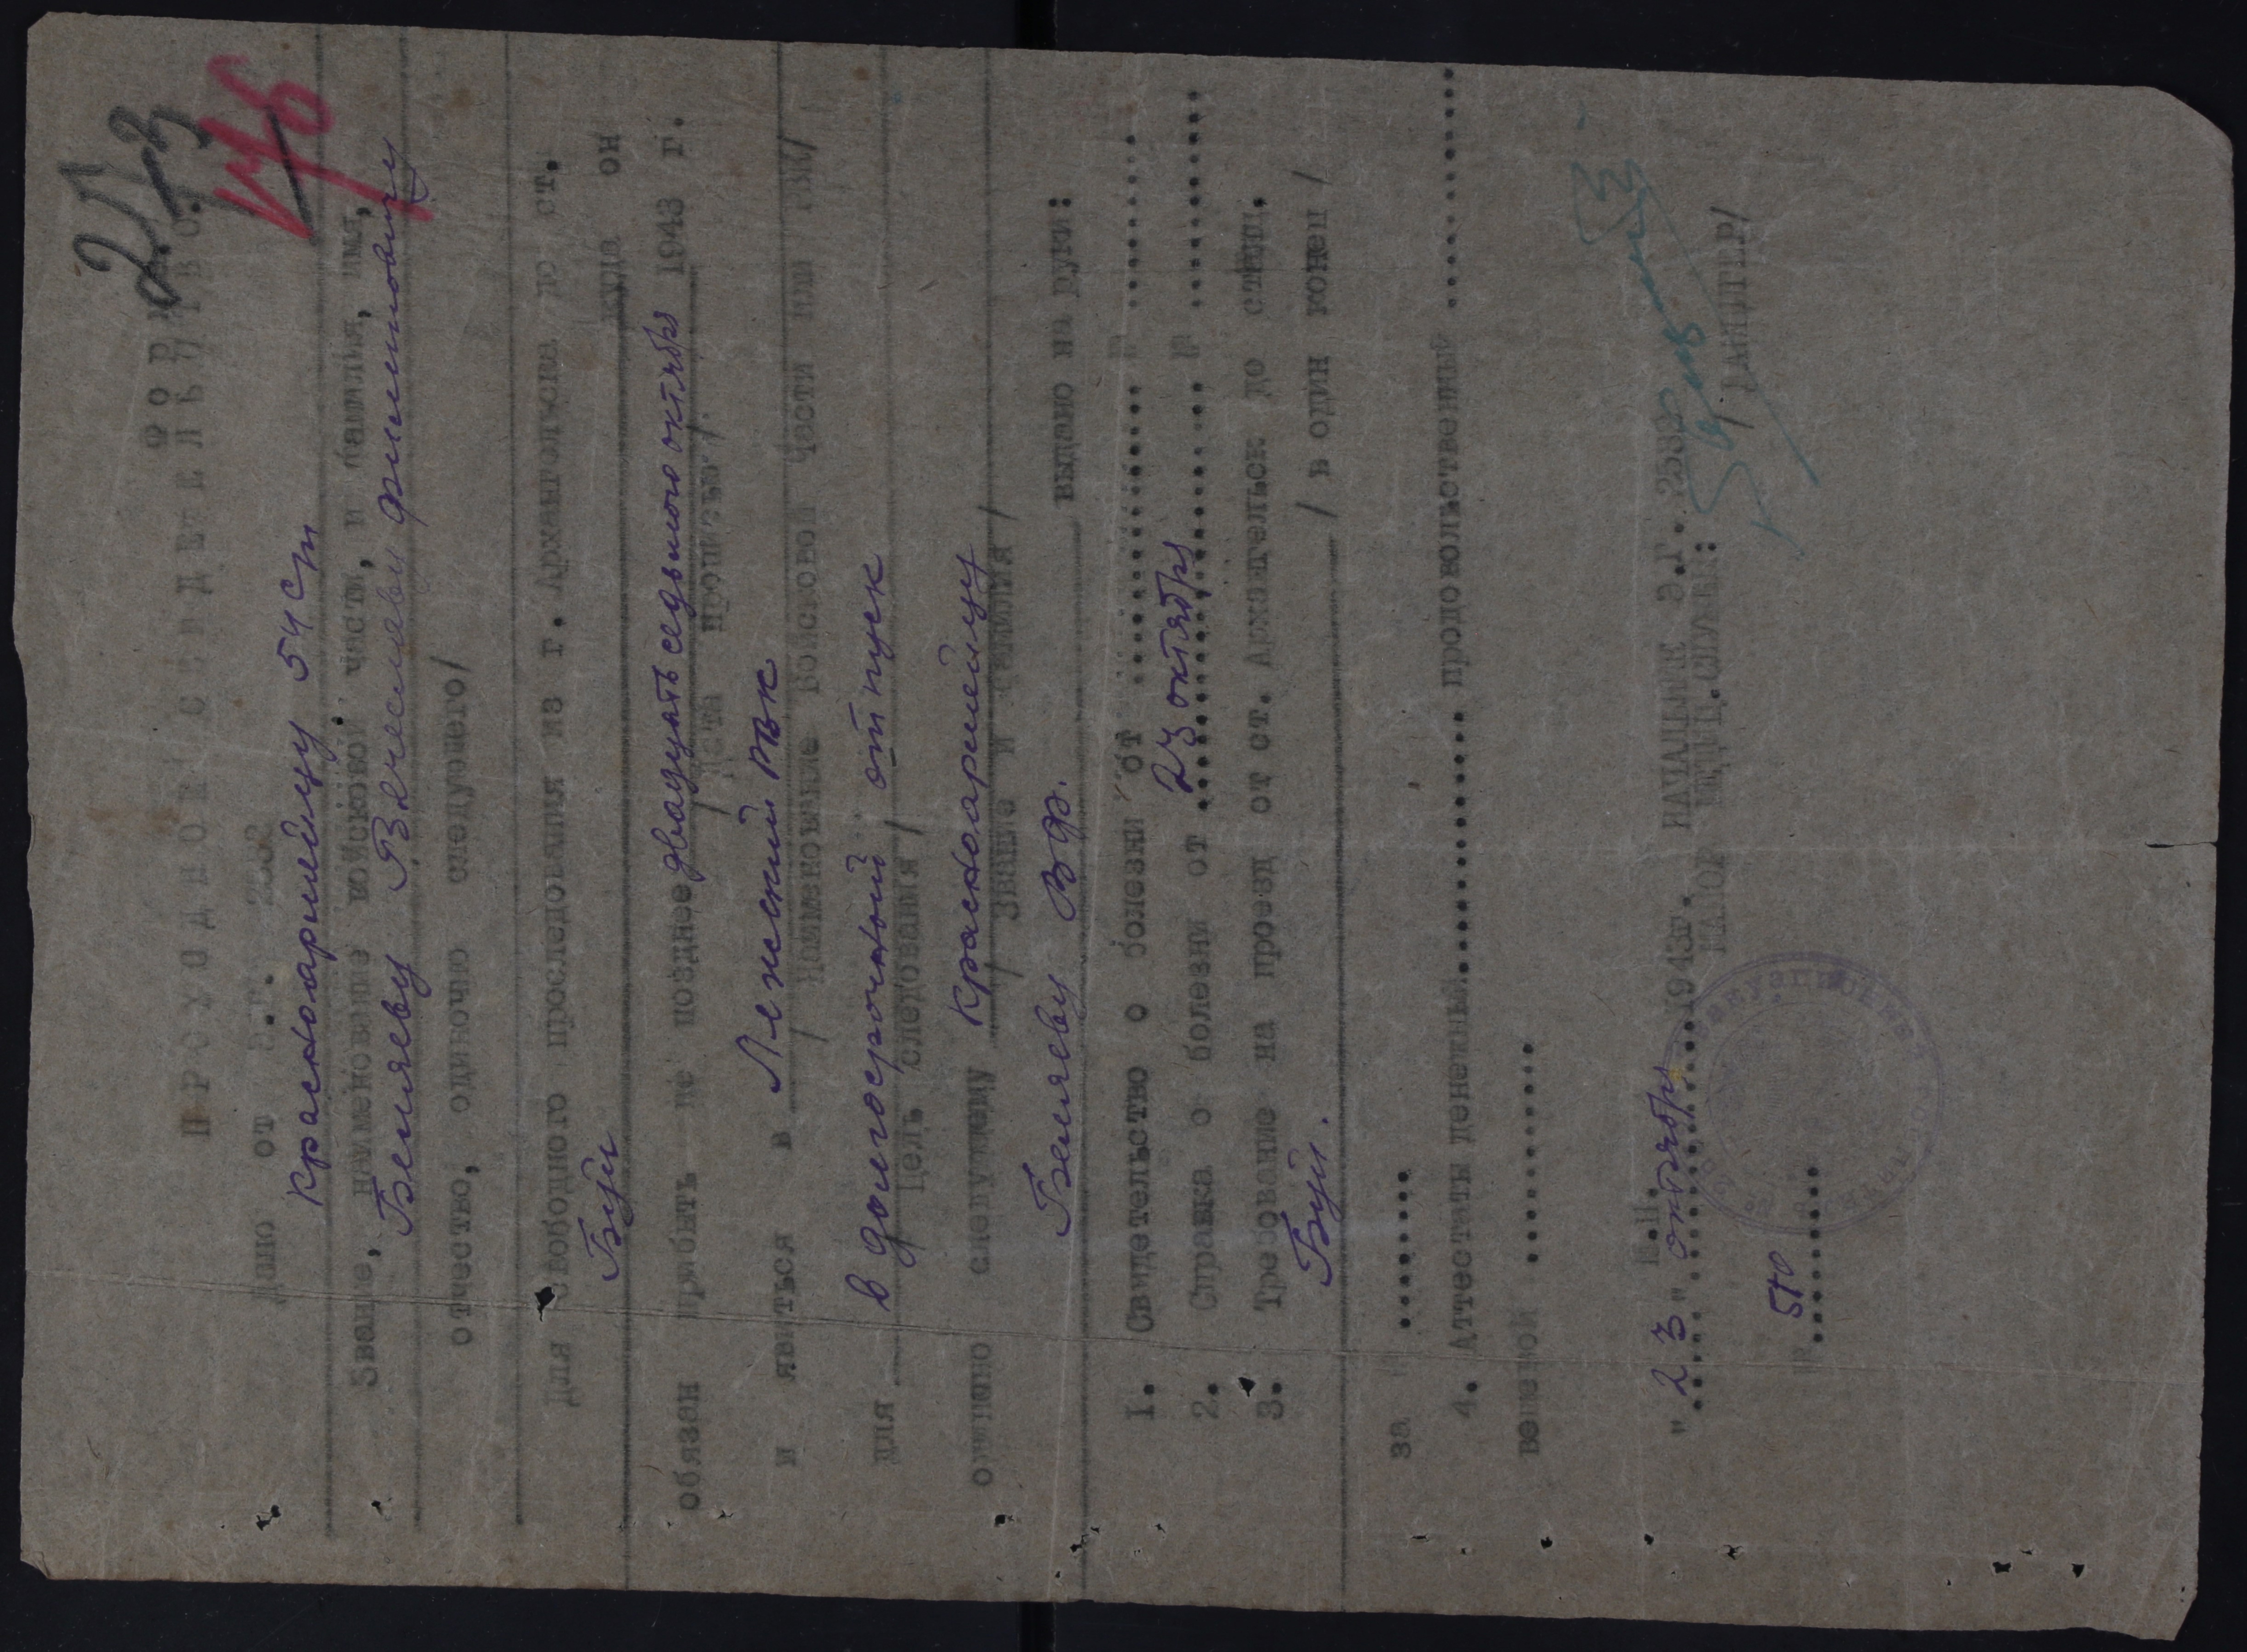 213
Ф О Р М
П Р О Х О Д Н О Е С В И Д Е Т Е Л Ь С Т В О.
Дано от Э.Г. 2532
Красноармейцу 54 сп
/Звание, наименование войсковой части, и фамилия, имя,
Беляеву Вячеславу Филипповичу
отчество, одиночно следующего/
Для свободного проследования из г. Архангельска до ст.
Буй куда он
обязан прибыть не позднее двадцать седьмого октября 1943 г.
/дата прописью/
и явиться в Лежский РВК
/ наименование войсковой части или РВК/
для в долгосрочный отпуск
/Цель следования/
одиночно следующему красноармейцу
/ звание и фамилия /
Беляеву В.Ф. выдано на руки:
1. Свидетельство о болезни от .............. № ..........
2. Справка о болезни от 23 октября № ..........
3. Требование на проезд от ст. Архангельск до станц.
Буй. / в один конец /
за № ........
4. Аттестаты денежный.............. продовольственный ..........
вещевой ..........
М.П.
"23" октября 1943г. НАЧАЛЬНИК Э.Г. 2532
МАЙОР МЕДИЦ.СЛУЖБЫ:
/ГАНДЛЕР/
№ 510